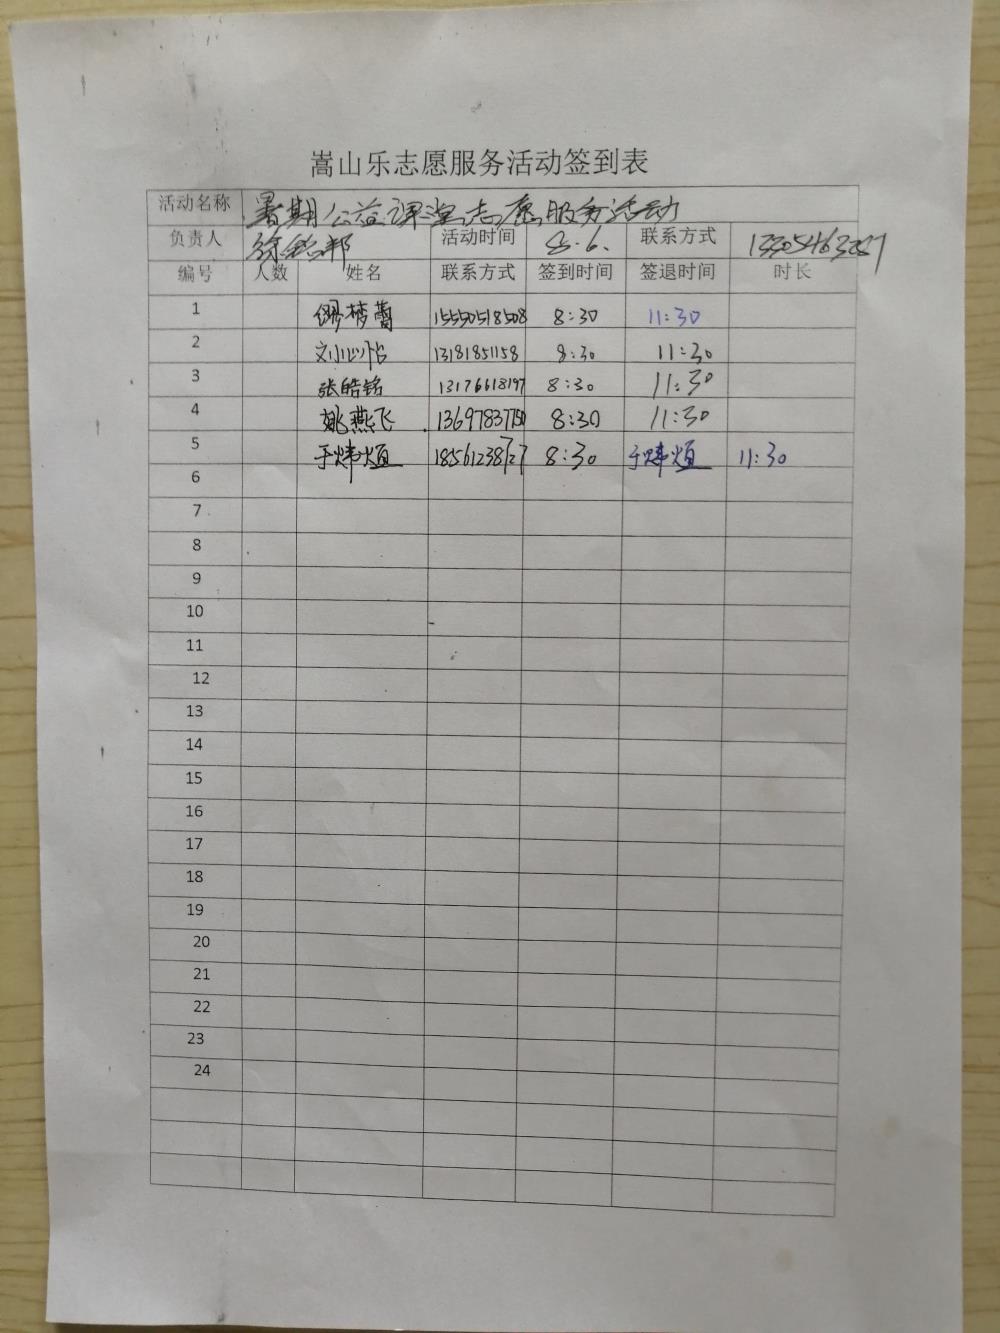 嵩山乐志愿服务活动签到表
活动名称 暑期公益课堂志愿服务活动
负责人 活动时间 8.6. 联系方式
编号 人数 姓名 联系方式 签到时间 签退时间 时长
1 缪梦蕾 15550518508 8:30 11:30
2 刘心怡 13181851158 8:30 11:30
3 张皓铭 13176618197 8:30 11:30
4 姚燕飞 13697837750 8:30 11:30
5 于炜烜 18561238727 8:30 于炜烜 11:30
6
7
8
9
10
11
12
13
14
15
16
17
18
19
20
21
22
23
24